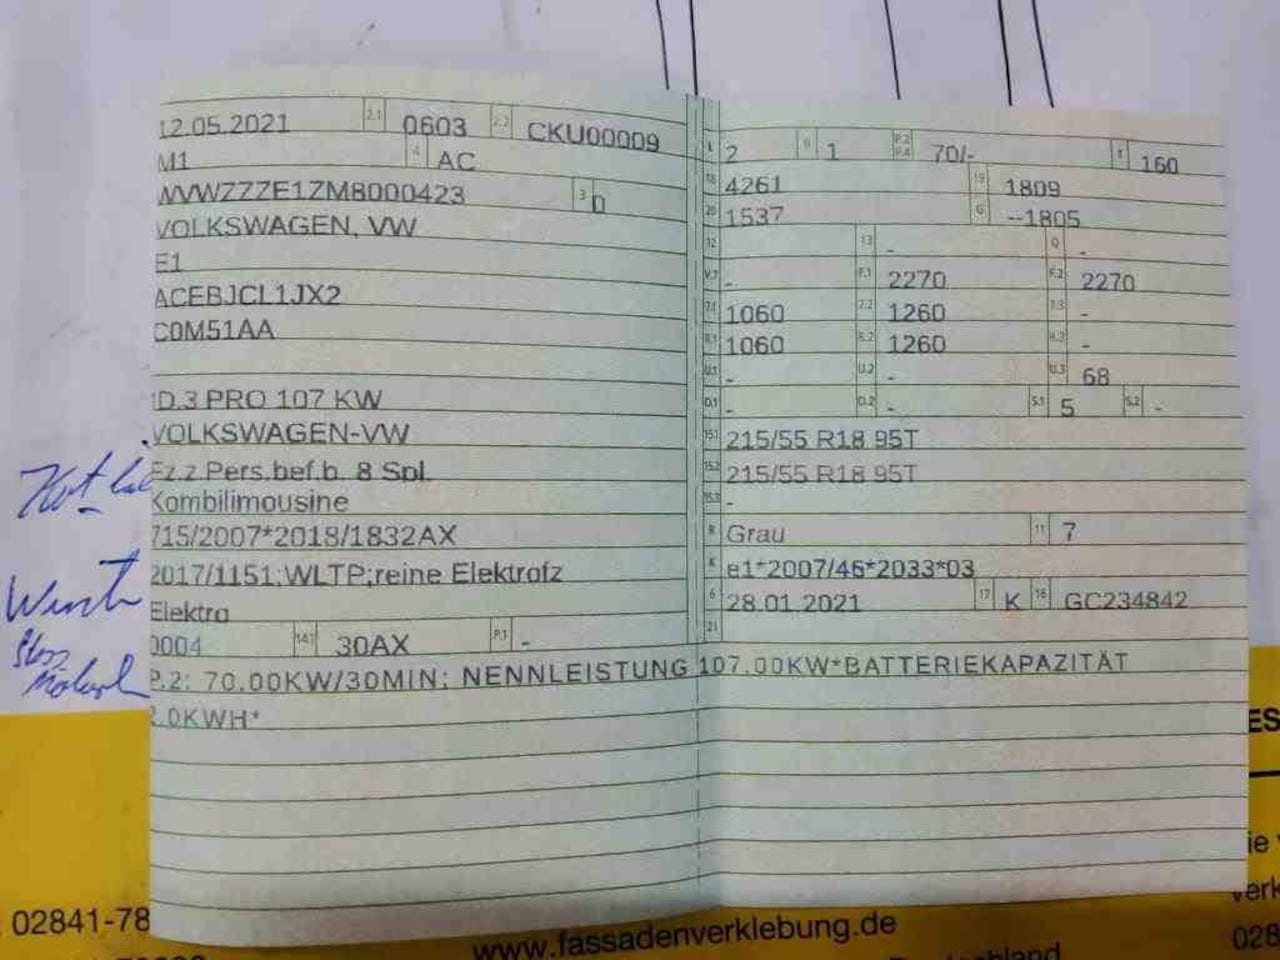 12.05.2021 2.1 0603 2.2 CKU00009
M1 4 AC
WVWZZZE1ZM8000423 3 0
VOLKSWAGEN, VW
E1
ACEBJCL1JX2
C0M51AA
ID.3 PRO 107 KW
VOLKSWAGEN-VW
Fz.z.Pers.bef.b. 8 Spl.
Kombilimousine
715/2007*2018/1832AX
2017/1151;WLTP;reine Elektrofz
Elektro
0004 14.1 30AX P.1 -
L 2 9 1 P.2 P.4 70/- T 160
18 4261 19 1809
20 1537 G --1805
12 13 - Q -
V.7 - F.1 2270 F.2 2270
7.1 1060 7.2 1260 7.3 -
8.1 1060 8.2 1260 8.3 -
U.1 - U.2 - U.3 68
O.1 - O.2 - S.1 5 S.2 -
15.1 215/55 R18 95T
15.2 215/55 R18 95T
15.3 -
R Grau 11 7
K e1*2007/46*2033*03
6 28.01.2021 17 K 16 GC234842
21
P.2: 70.00KW/30MIN; NENNLEISTUNG 107.00KW*BATTERIEKAPAZITÄT
2.0KWH*
02841-78
www.fassadenverklebung.de
ES
ie
verk
028